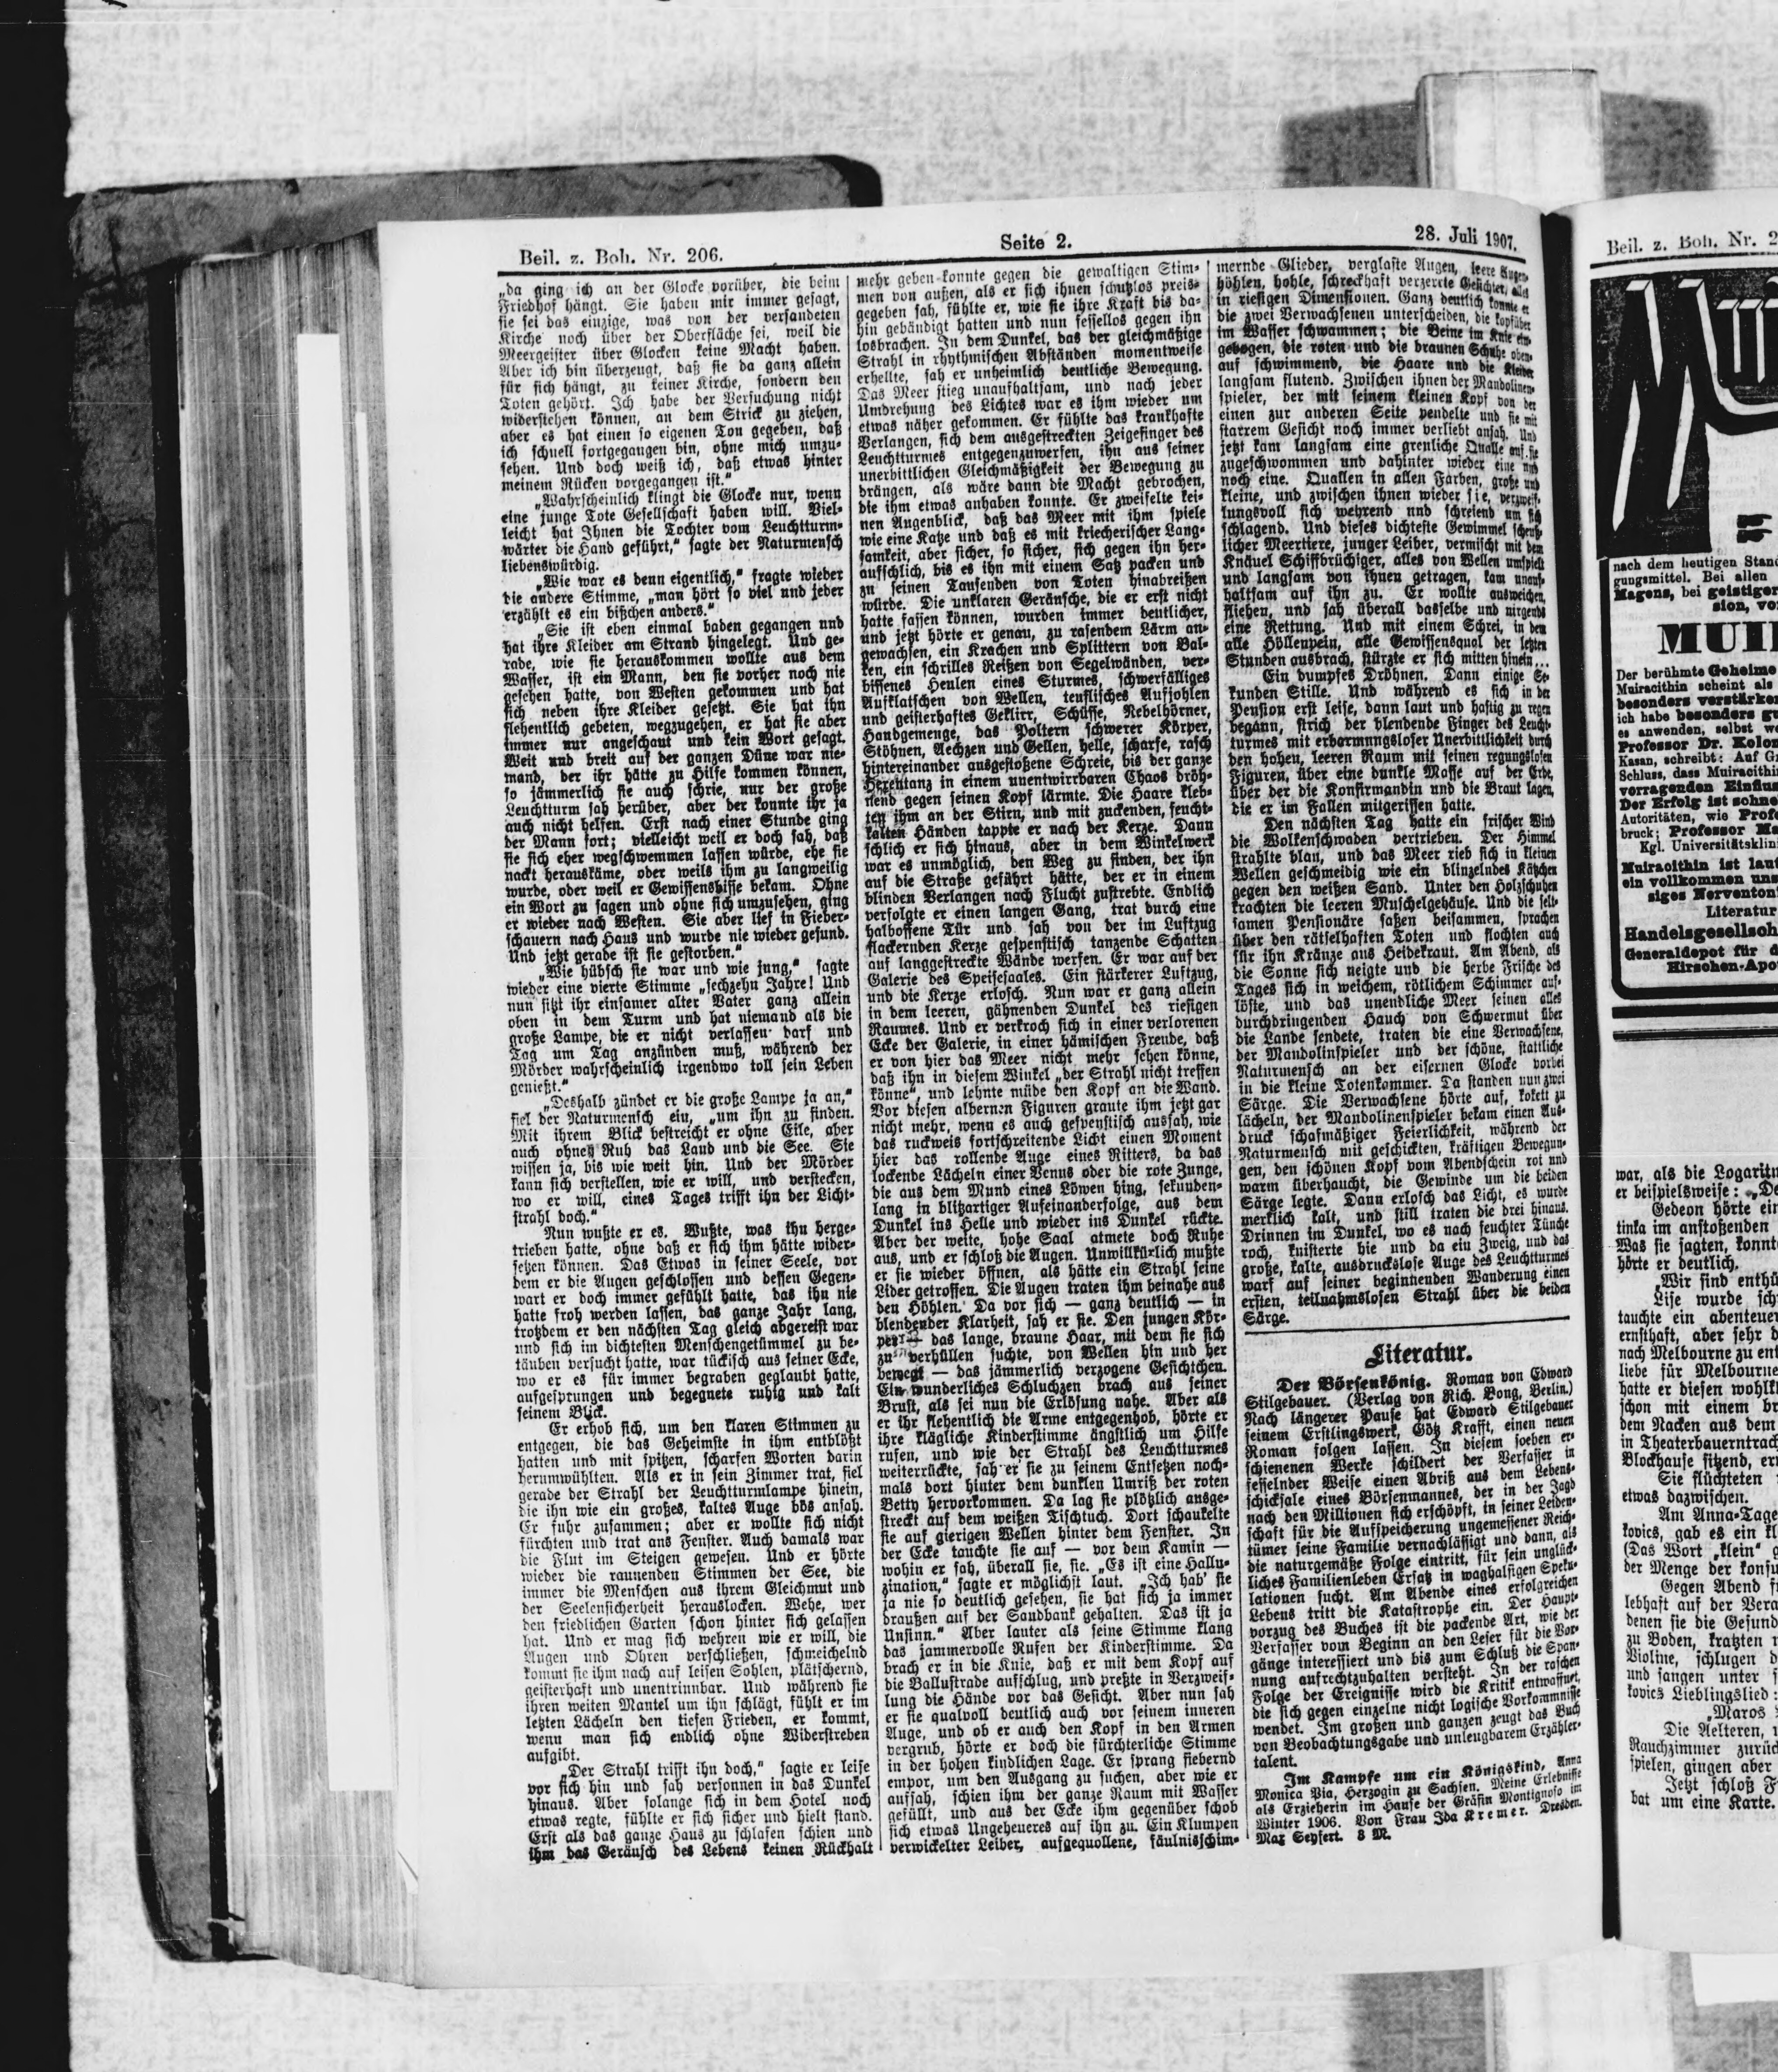 Beil. z. Boh. Nr. 206.
Seite 2.
28. Juli 1907.
„da ging ich an der Glocke vorüber, die beim
Friedhof hängt. Sie haben mir immer gesagt,
sie sei das einzige, was von der versandeten
Kirche noch über der Oberfläche sei, weil die
Meergeister über Glocken keine Macht haben.
Aber ich bin überzeugt, daß sie da ganz allein
für sich hängt, zu keiner Kirche, sondern den
Toten gehört. Ich habe der Versuchung nicht
widerstehen können, an dem Strick zu ziehen,
aber es hat einen so eigenen Ton gegeben, daß
ich schnell fortgegangen bin, ohne mich umzu-
sehen. Und doch weiß ich, daß etwas hinter
meinem Rücken vorgegangen ist.“
„Wahrscheinlich klingt die Glocke nur, wenn
eine junge Tote Gesellschaft haben will. Viel-
leicht hat Ihnen die Tochter vom Leuchtturm-
wärter die Hand geführt,“ sagte der Naturmensch
liebenswürdig.
„Wie war es denn eigentlich,“ fragte wieder
die andere Stimme, „man hört so viel und jeder
erzählt es ein bißchen anders.“
„Sie ist eben einmal baden gegangen und
hat ihre Kleider am Strand hingelegt. Und ge-
rade, wie sie herauskommen wollte aus dem
Wasser, ist ein Mann, den sie vorher noch nie
gesehen hatte, von Westen gekommen und hat
sich neben ihre Kleider gesetzt. Sie hat ihn
flehentlich gebeten, wegzugehen, er hat sie aber
immer nur angeschaut und kein Wort gesagt.
Weit und breit auf der ganzen Düne war nie-
mand, der ihr hätte zu Hilfe kommen können,
so jämmerlich sie auch schrie, nur der große
Leuchtturm sah herüber, aber der konnte ihr ja
auch nicht helfen. Erst nach einer Stunde ging
der Mann fort; vielleicht weil er doch sah, daß
sie sich eher wegschwemmen lassen würde, ehe sie
nackt herauskäme, oder weils ihm zu langweilig
wurde, oder weil er Gewissensbisse bekam. Ohne
ein Wort zu sagen und ohne sich umzusehen, ging
er wieder nach Westen. Sie aber lief in Fieber-
schauern nach Haus und wurde nie wieder gesund.
Und jetzt gerade ist sie gestorben.“
„Wie hübsch sie war und wie jung,“ sagte
wieder eine vierte Stimme „sechzehn Jahre! Und
nun sitzt ihr einsamer alter Vater ganz allein
oben in dem Turm und hat niemand als die
große Lampe, die er nicht verlassen darf und
Tag um Tag anzünden muß, während der
Mörder wahrscheinlich irgendwo toll sein Leben
genießt.“
„Deshalb zündet er die große Lampe ja an,“
fiel der Naturmensch ein, „um ihn zu finden.
Mit ihrem Blick bestreicht er ohne Eile, aber
auch ohne Ruh das Land und die See. Sie
wissen ja, bis wie weit hin. Und der Mörder
kann sich verstellen, wie er will, und verstecken,
wo er will, eines Tages trifft ihn der Licht-
strahl doch.“
Nun wußte er es. Wußte, was ihn herge-
trieben hatte, ohne daß er sich ihm hätte wider-
setzen können. Das Etwas in seiner Seele, vor
dem er die Augen geschlossen und dessen Gegen-
wart er doch immer gefühlt hatte, das ihn nie
hatte froh werden lassen, das ganze Jahr lang,
trotzdem er den nächsten Tag gleich abgereist war
und sich im dichtesten Menschengetümmel zu be-
täuben versucht hatte, war tückisch aus seiner Ecke,
wo er es für immer begraben geglaubt hatte,
aufgesprungen und begegnete ruhig und kalt
seinem Blick.
Er erhob sich, um den klaren Stimmen zu
entgegen, die das Geheimste in ihm entblößt
hatten und mit spitzen, scharfen Worten darin
herumwühlten. Als er in sein Zimmer trat, fiel
gerade der Strahl der Leuchtturmlampe hinein,
die ihn wie ein großes, kaltes Auge bös ansah.
Er fuhr zusammen; aber er wollte sich nicht
fürchten und trat ans Fenster. Auch damals war
die Flut im Steigen gewesen. Und er hörte
wieder die raunenden Stimmen der See, die
immer die Menschen aus ihrem Gleichmut und
der Seelensicherheit herauslocken. Wehe, wer
den friedlichen Garten schon hinter sich gelassen
hat. Und er mag sich wehren wie er will, die
Augen und Ohren verschließen, schmeichelnd
kommt sie ihm nach auf leisen Sohlen, plätschernd,
geisterhaft und unentrinnbar. Und während sie
ihren weiten Mantel um ihn schlägt, fühlt er im
letzten Lächeln den tiefen Frieden, er kommt,
wenn man sich endlich ohne Widerstreben
aufgibt.
„Der Strahl trifft ihn doch,“ sagte er leise
vor sich hin und sah versonnen in das Dunkel
hinaus. Aber solange sich in dem Hotel noch
etwas regte, fühlte er sich sicher und hielt stand.
Erst als das ganze Haus zu schlafen schien und
ihm das Geräusch des Lebens keinen Rückhalt
mehr geben konnte gegen die gewaltigen Stim-
men von außen, als er sich ihnen schutzlos preis-
gegeben sah, fühlte er, wie sie ihre Kraft bis da-
hin gebändigt hatten und nun fessellos gegen ihn
losbrachen. In dem Dunkel, das der gleichmäßige
Strahl in rhythmischen Abständen momentweise
erhellte, sah er unheimlich deutliche Bewegung.
Das Meer stieg unaufhaltsam, und nach jeder
Umdrehung des Lichtes war es ihm wieder um
etwas näher gekommen. Er fühlte das krankhafte
Verlangen, sich dem ausgestreckten Zeigefinger des
Leuchtturmes entgegenzuwerfen, ihn aus seiner
unerbittlichen Gleichmäßigkeit der Bewegung zu
drängen, als wäre dann die Macht gebrochen,
die ihm etwas anhaben konnte. Er zweifelte kei-
nen Augenblick, daß das Meer mit ihm spiele
wie eine Katze und daß es mit kriecherischer Lang-
samkeit, aber sicher, so sicher, sich gegen ihn her-
aufschlich, bis es ihn mit einem Satz packen und
zu seinen Tausenden von Toten hinabreißen
würde. Die unklaren Geräusche, die er erst nicht
hatte fassen können, wurden immer deutlicher,
und jetzt hörte er genau, zu rasendem Lärm an-
gewachsen, ein Krachen und Splittern von Bal-
ken, ein schrilles Reißen von Segelwänden, ver-
bissenes Heulen eines Sturmes, schwerfälliges
Aufklatschen von Wellen, teuflisches Aufjohlen
und geisterhaftes Geklirr, Schüsse, Nebelhörner,
Handgemenge, das Poltern schwerer Körper,
Stöhnen, Aechzen und Gellen, helle, scharfe, rasch
hintereinander ausgestoßene Schreie, bis der ganze
Hexentanz in einem unentwirrbaren Chaos dröh-
nend gegen seinen Kopf lärmte. Die Haare kleb-
ten ihm an der Stirn, und mit zuckenden, feucht-
kalten Händen tappte er nach der Kerze. Dann
schlich er sich hinaus, aber in dem Winkelwerk
war es unmöglich, den Weg zu finden, der ihn
auf die Straße geführt hätte, der er in einem
blinden Verlangen nach Flucht zustrebte. Endlich
verfolgte er einen langen Gang, trat durch eine
halboffene Tür und sah von der im Luftzug
flackernden Kerze gespenstisch tanzende Schatten
auf langgestreckte Wände werfen. Er war auf der
Galerie des Speisesaales. Ein stärkerer Luftzug,
und die Kerze erlosch. Nun war er ganz allein
in dem leeren, gähnenden Dunkel des riesigen
Raumes. Und er verkroch sich in einer verlorenen
Ecke der Galerie, in einer hämischen Freude, daß
er von hier das Meer nicht mehr sehen könne,
daß ihn in diesem Winkel „der Strahl nicht treffen
könne“, und lehnte müde den Kopf an die Wand.
Vor diesen albernen Figuren graute ihm jetzt gar
nicht mehr, wenn es auch gespenstisch aussah, wie
das ruckweis fortschreitende Licht einen Moment
hier das rollende Auge eines Ritters, da das
lockende Lächeln einer Venus oder die rote Zunge,
die aus dem Mund eines Löwen hing, sekunden-
lang in blitzartiger Aufeinanderfolge, aus dem
Dunkel ins Helle und wieder ins Dunkel rückte.
Aber der weite, hohe Saal atmete doch Ruhe
aus, und er schloß die Augen. Unwillkürlich mußte
er sie wieder öffnen, als hätte ein Strahl seine
Lider getroffen. Die Augen traten ihm beinahe aus
den Höhlen. Da vor sich — ganz deutlich — in
blendender Klarheit, sah er sie. Den jungen Kör-
per — das lange, braune Haar, mit dem sie sich
zu verhüllen suchte, von Wellen hin und her
bewegt — das jämmerlich verzogene Gesichtchen.
Ein wunderliches Schluchzen brach aus seiner
Brust, als sei nun die Erlösung nahe. Aber als
er ihr flehentlich die Arme entgegenhob, hörte er
ihre klägliche Kinderstimme ängstlich um Hilfe
rufen, und wie der Strahl des Leuchtturmes
weiterrückte, sah er sie zu seinem Entsetzen noch-
mals dort hinter dem dunklen Umriß der roten
Betty hervorkommen. Da lag sie plötzlich ausge-
streckt auf dem weißen Tischtuch. Dort schaukelte
sie auf gierigen Wellen hinter dem Fenster. In
der Ecke tauchte sie auf — vor dem Kamin —
wohin er sah, überall sie, sie. „Es ist eine Hallu-
zination,“ sagte er möglichst laut. „Ich hab’ sie
ja nie so deutlich gesehen, sie hat sich ja immer
draußen auf der Sandbank gehalten. Das ist ja
Unsinn.“ Aber lauter als seine Stimme klang
das jammervolle Rufen der Kinderstimme. Da
brach er in die Knie, daß er mit dem Kopf auf
die Ballustrade aufschlug, und preßte in Verzweif-
lung die Hände vor das Gesicht. Aber nun sah
er sie qualvoll deutlich auch vor seinem inneren
Auge, und ob er auch den Kopf in den Armen
vergrub, hörte er doch die fürchterliche Stimme
in der hohen kindlichen Lage. Er sprang fiebernd
empor, um den Ausgang zu suchen, aber wie er
aufsah, schien ihm der ganze Raum mit Wasser
gefüllt, und aus der Ecke ihm gegenüber schob
sich etwas Ungeheueres auf ihn zu. Ein Klumpen
verwickelter Leiber, aufgequollene, fäulnisschim-
mernde Glieder, verglaste Augen, leere Augen-
höhlen, hohle, schreckhaft verzerrte Gesichter, alles
in riesigen Dimensionen. Ganz deutlich konnte er
die zwei Verwachsenen unterscheiden, die kopfüber
im Wasser schwammen; die Beine im Knie ein-
gebogen, die roten und die braunen Schuhe oben-
auf schwimmend, die Haare und die Kleider
langsam flutend. Zwischen ihnen der Mandolinen-
spieler, der mit seinem kleinen Kopf von der
einen zur anderen Seite pendelte und sie mit
starrem Gesicht noch immer verliebt ansah. Und
jetzt kam langsam eine grenliche Qualle auf sie
zugeschwommen und dahinter wieder eine und
noch eine. Quallen in allen Farben, große und
kleine, und zwischen ihnen wieder sie, verzweif-
lungsvoll sich wehrend und schreiend um sich
schlagend. Und dieses dichteste Gewimmel scheuß-
licher Meertiere, junger Leiber, vermischt mit dem
Knäuel Schiffbrüchiger, alles von Wellen umspielt
und langsam von ihnen getragen, kam unauf-
haltsam auf ihn zu. Er wollte ausweichen,
fliehen, und sah überall dasselbe und nirgends
eine Rettung. Und mit einem Schrei, in dem
alle Höllenpein, alle Gewissensqual der letzten
Stunden ausbrach, stürzte er sich mitten hinein...
Ein dumpfes Dröhnen. Dann einige Se-
kunden Stille. Und während es sich in der
Pension erst leise, dann laut und hastig zu regen
begann, strich der blendende Finger des Leucht-
turmes mit erbarmungsloser Unerbittlichkeit durch
den hohen, leeren Raum mit seinen regungslosen
Figuren, über eine dunkle Masse auf der Erde,
über der die Konfirmandin und die Braut lagen,
die er im Fallen mitgerissen hatte.
Den nächsten Tag hatte ein frischer Wind
die Wolkenschwaden vertrieben. Der Himmel
strahlte blau, und das Meer rieb sich in kleinen
Wellen geschmeidig wie ein blinzelndes Kätzchen
gegen den weißen Sand. Unter den Holzschuhen
krachten die leeren Muschelgehäuse. Und die selt-
samen Pensionäre saßen beisammen, sprachen
über den rätselhaften Toten und flochten auch
für ihn Kränze aus Heidekraut. Am Abend, als
die Sonne sich neigte und die herbe Frische des
Tages sich in weichem, rötlichem Schimmer auf-
löste, und das unendliche Meer seinen alles
durchdringenden Hauch von Schwermut über
die Lande sendete, traten die eine Verwachsene,
der Mandolinspieler und der schöne, stattliche
Naturmensch an der eisernen Glocke vorbei
in die kleine Totenkammer. Da standen nun zwei
Särge. Die Verwachsene hörte auf, kokett zu
lächeln, der Mandolinenspieler bekam einen Aus-
druck schafmäßiger Feierlichkeit, während der
Naturmensch mit geschickten, kräftigen Bewegun-
gen, den schönen Kopf vom Abendschein rot und
warm überhaucht, die Gewinde um die beiden
Särge legte. Dann erlosch das Licht, es wurde
merklich kalt, und still traten die drei hinaus.
Drinnen im Dunkel, wo es nach feuchter Tünche
roch, knisterte hie und da ein Zweig, und das
große, kalte, ausdruckslose Auge des Leuchtturmes
warf auf seiner beginnenden Wanderung einen
ersten, teilnahmslosen Strahl über die beiden
Särge.
Literatur.
Der Börsenkönig. Roman von Edward
Stilgebauer. (Verlag von Rich. Bong, Berlin.)
Nach längerer Pause hat Edward Stilgebauer
seinem Erstlingswerk, Götz Krafft, einen neuen
Roman folgen lassen. In diesem soeben er-
schienenen Werke schildert der Verfasser in
fesselnder Weise einen Abriß aus dem Lebens-
schicksale eines Börsenmannes, der in der Jagd
nach den Millionen sich erschöpft, in seiner Leiden-
schaft für die Aufspeicherung ungemessener Reich-
tümer seine Familie vernachlässigt und dann, als
die naturgemäße Folge eintritt, für sein unglück-
liches Familienleben Ersatz in waghalsigen Speku-
lationen sucht. Am Abende eines erfolgreichen
Lebens tritt die Katastrophe ein. Der Haupt-
vorzug des Buches ist die packende Art, wie der
Verfasser vom Beginn an den Leser für die Vor-
gänge interessiert und bis zum Schluß die Span-
nung aufrechtzuhalten versteht. In der raschen
Folge der Ereignisse wird die Kritik entwaffnet,
die sich gegen einzelne nicht logische Vorkommnisse
wendet. Im großen und ganzen zeugt das Buch
von Beobachtungsgabe und unleugbarem Erzähler-
talent.
Im Kampfe um ein Königskind, Anna
Monica Pia, Herzogin zu Sachsen. Meine Erlebnisse
als Erzieherin im Hause der Gräfin Montignoso im
Winter 1906. Von Frau Ida Kremer. Dresden.
Max Seyfert. 3 M.
Beil. z. Boh. Nr. 2
nach dem heutigen Stand
gungsmittel. Bei allen
Magens, bei geistiger
sion, vo
MUI
Der berühmte Geheime
Muiracithin scheint als
besonders verstärke
ich habe besonders gu
es anwenden, selbst we
Professor Dr. Kolom
Kasan, schreibt: Auf Gr
Schluss, dass Muiracithin
vorragenden Einflus
Der Erfolg ist schne
Autoritäten, wie Profe
bruck; Professor Ma
Kgl. Universitätsklini
Muiracithin ist laut
ein vollkommen uns
siges Nerventon
Literatur
Handelsgesellsch
Generaldepot für d
Hirschen-Apo
war, als die Logarit
er beispielsweise: „De
Gedeon hörte ein
tinka im anstoßenden
Was sie sagten, konnte
hörte er deutlich.
„Wir sind enthü
Lise wurde sch
tauchte ein abenteuer
ernsthaft, aber sehr d
nach Melbourne zu ent
liebe für Melbourne
hatte er diesen wohlkl
schon mit einem br
dem Nacken aus dem
in Theaterbauerntrach
Blockhause sitzend, er
Sie flüchteten
etwas dazwischen.
Am Anna-Tage
kovics, gab es ein kl
(Das Wort „klein“ g
der Menge der konsu
Gegen Abend f
lebhaft auf der Vera
denen sie die Gesund
zu Boden, kratzten
Violine, schlugen d
und sangen unter s
kovics Lieblingslied:
„Maros
Die Aelteren,
Rauchzimmer zurück
spielen, gingen aber
Jetzt schloß F
bat um eine Karte.